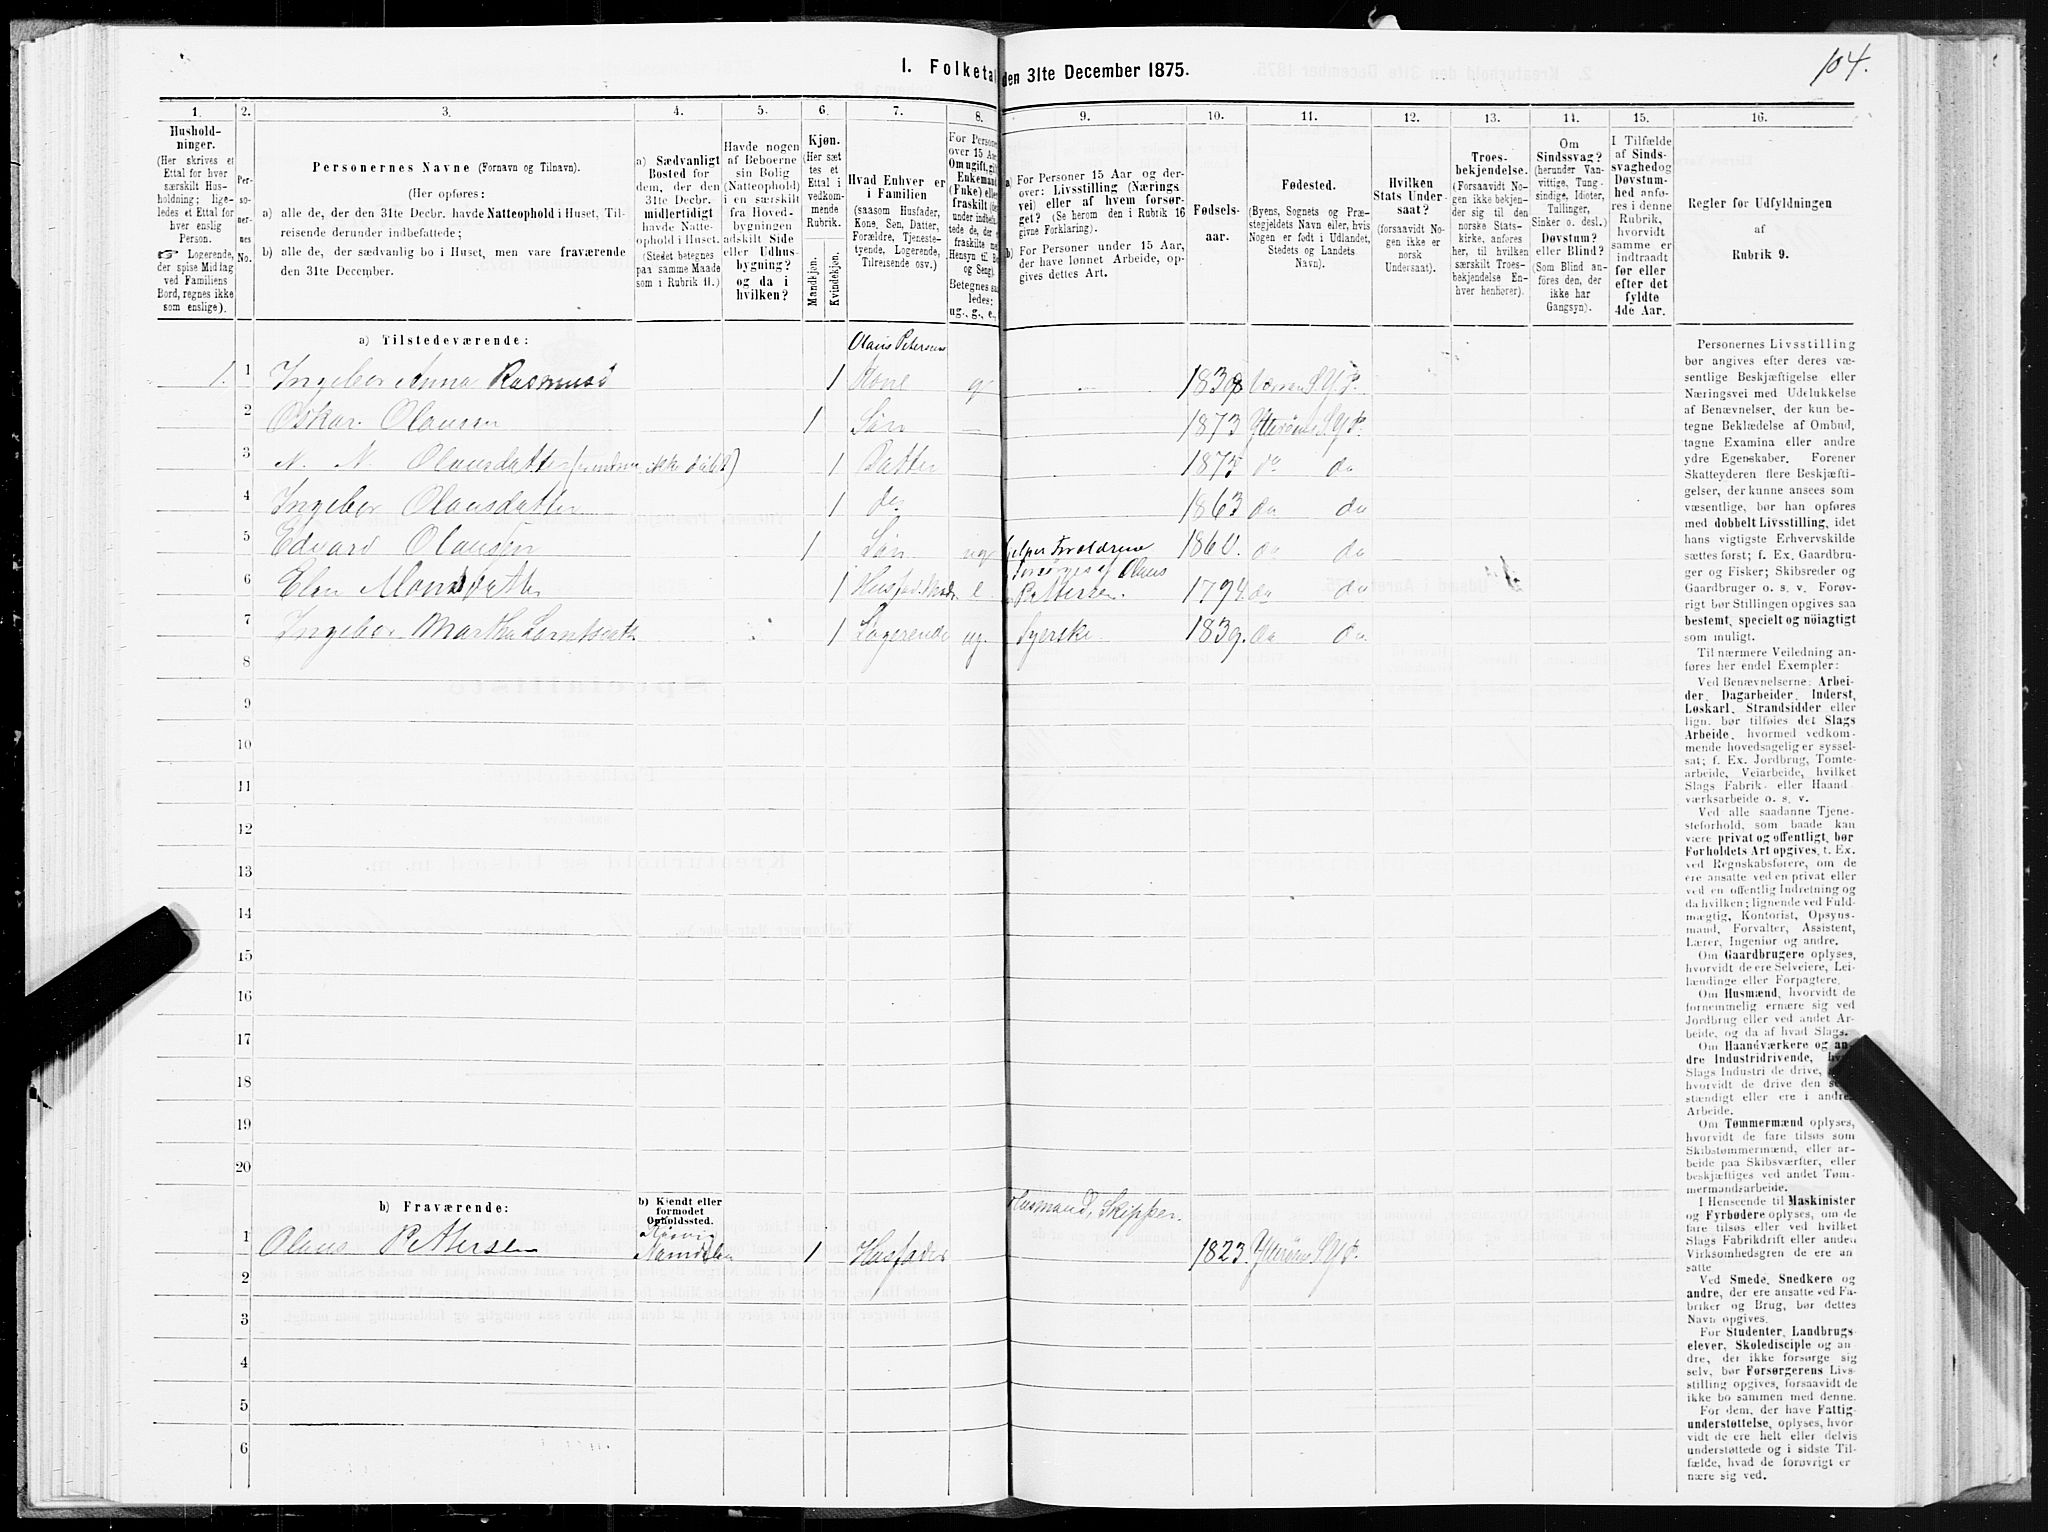 104.
I. Folketal den 31te December 1875.
1. 2. 3. 4. 5. 6. 7. 8. 9. 10. 11. 12. 13. 14. 15. 16.
Husholdninger.
(Her skrives et Ettal for hver særskilt Husholdning; ligeledes et Ettal for hver enslig Person.
☞ Logerende, der spise Middag ved Familiens Bord, regnes ikke som enslige).
Personernes No.
Personernes Navne (Fornavn og Tilnavn).
(Her opføres:
a) alle de, der den 31te Decbr. havde Natteophold i Huset, Tilreisende derunder indbefattede;
b) alle de, der sædvanlig bo i Huset, men vare fraværende den 31te December.
a) Sædvanligt Bosted for dem, der den 31te Decbr. midlertidigt havde Natteophold i Huset. (Stedet betegnes paa samme Maade som i Rubrik 11.)
Havde nogen af Beboerne sin Bolig (Natteophold) i en særskilt fra Hovedbygningen adskilt Side eller Udhusbygning? og da i hvilken?
Kjøn.
(Her sættes et Ettal i vedkommende Rubrik.
Mandkjøn. Kvindekjøn.
Hvad Enhver er i Familien
(saasom Husfader, Kone, Søn, Datter, Forældre, Tjenestetyende, Logerende, Tilreisende osv.)
For Personer over 15 Aar
Betegnes saaledes:
ug., g., e.,
a) For Personer 15 Aar og derover: Livsstilling (Næringsvei) eller af hvem forsørget? (Se herom den i Rubrik 16 givne Forklaring).
b) For Personer under 15 Aar, der have lønnet Arbeide, opgives dettes Art.
Fødselsaar.
Fødested.
(Byens, Sognets og Præstegjeldets Navn eller, hvis Nogen er født i Udlandet, Stedets og Landets Navn).
Hvilken Stats Undersaat?
(forsaavidt Nogen ikke er norsk Undersaat).
Troesbekjendelse.
(Forsaavidt Nogen ikke bekjender sig til den norske Statskirke, anføres her, til hvilken særskilt Troesbekjendelse Enhver henhører).
Om Sindssvag?
(herunder Vanvittige, Tungsindige, Idioter, Tullinger, Sinker o. desl.)
Døvstum? eller Blind?
(Som Blind anføres den, der ikke har Gangsyn).
I Tilfælde af Sindssvaghed og Døvstumhed anføres i denne Rubrik, hvorvidt samme er indtraadt før eller efter det fyldte 4de Aar.
Regler for Udfyldningen af Rubrik 9.
a) Tilstedeværende:
Olaus Petersens
1. 1 Ingebor Anna Rasmusd 1 Kone g 1838 S. Y. P.
2 Oskar Olausen 1 Søn 1873 Ytterøens S. Y. P.
3 N. N. Olausdatter (endnu ikke døbt) 1 Datter 1875 do do
4 Ingebor Olausdatter 1 do 1863 do do
5 Edvard Olausen 1 Søn ug Hjelper Forældrene 1860. do do
6 Elen Monsdatter 1 Husfad. Moder e. Forsørges af Olaus Pettersen. 1794 do do
7 Ingebor Martha Lorntsdatt 1 Logerende ug. Syerske. 1839. do do
8
9
10
11
12
13
14
15
16
17
18
19
20
b) Fraværende:
b) Kjendt eller formodet Opholdssted.
Husmand, Skipper.
1 Olaus Pettersen Namdalen 1 Husfader 1823. Ytterøens S. Y. P.
2
3
4
5
6
Personernes Livsstilling
bør angives efter deres væ-
sentlige Beskjæftigelse eller
Næringsvei med Udelukkelse
af Benævnelser, der kun be-
tegne Beklædelse af Ombud,
tagne Examina eller andre
ydre Egenskaber. Forener
Skatteyderen flere Beskjæfti-
gelser, der kunne ansees som
væsentlige, bør han opføres
med dobbelt Livsstilling, idet
hans vigtigste Erhvervskilde
sættes først; f. Ex. Gaardbru-
ger og Fisker; Skibsreder og
Gaardbruger o. s. v. Forøv-
rigt bør Stillingen opgives saa
bestemt, specielt og nöiagtigt
som muligt.
Til nærmere Veiledning an-
føres her endel Exempler:
Ved Benævnelserne: Arbei-
der, Dagarbeider, Inderst,
Løskarl, Strandsidder eller
lign. bør tilføies det Slags
Arbeide, hvormed vedkom-
mende hovedsagelig er syssel-
sat; f. Ex. Jordbrug, Tomte-
arbeide, Veiarbeide, hvilket
Slags Fabrik- eller Haand-
værksarbeide o. s. v.
Ved alle saadanne Tjene-
steforhold, som baade kan
være privat og offentligt, bør
Forholdets Art opgives, t. Ex.
ved Regnskabsførere, om de
ere ansatte ved en privat eller
ved en offentlig Indretning og
da hvilken; lignende ved Fuld-
mægtig, Kontorist, Opsyns-
mand, Forvalter, Assistent,
Lærer, Ingeniør og andre.
Om Gaardbrugere oplyses,
hvorvidt de ere Selveiere, Lei-
lændinge eller Forpagtere.
Om Husmænd, hvorvidt de
fornemmelig ernære sig ved
Jordbrug eller ved andet Ar-
beide, og da af hvad Slags.
Om Haandværkere og an-
dre Industridrivende,
Slags Industri de drive,
hvorvidt de drive den
stændigt eller ere i andres
Arbeide.
Om Tømmermænd oplyses,
hvorvidt de fare tilsøs som
Skibstømmermænd, eller ar-
beide paa Skibsværfter, eller
beskjæftiges ved andet Tøm-
mermandsarbeide.
I Henseende til Maskinister
og Fyrbødere oplyses, om de
fare tilsøs eller ved hvilket
Slags Fabrikdrift eller anden
Virksomhedsgren de ere an-
satte
Ved Smede, Snedkere og
andre, der ere ansatte ved Fa-
briker og Brug, bør dettes
Navn opgives.
For Studenter, Landbrugs-
elever, Skoledisciple og an-
dre, der ikke forsørge sig
selv, bør Forsørgerens Livs-
stilling opgives, forsaavidt de
ikke bo sammen med denne.
For dem, der have Fattig-
understøttelse, oplyses, hvor-
vidt de ere helt eller delvis
understøttede og i sidste Til-
fælde, hvad de forøvrigt er-
nære sig ved.